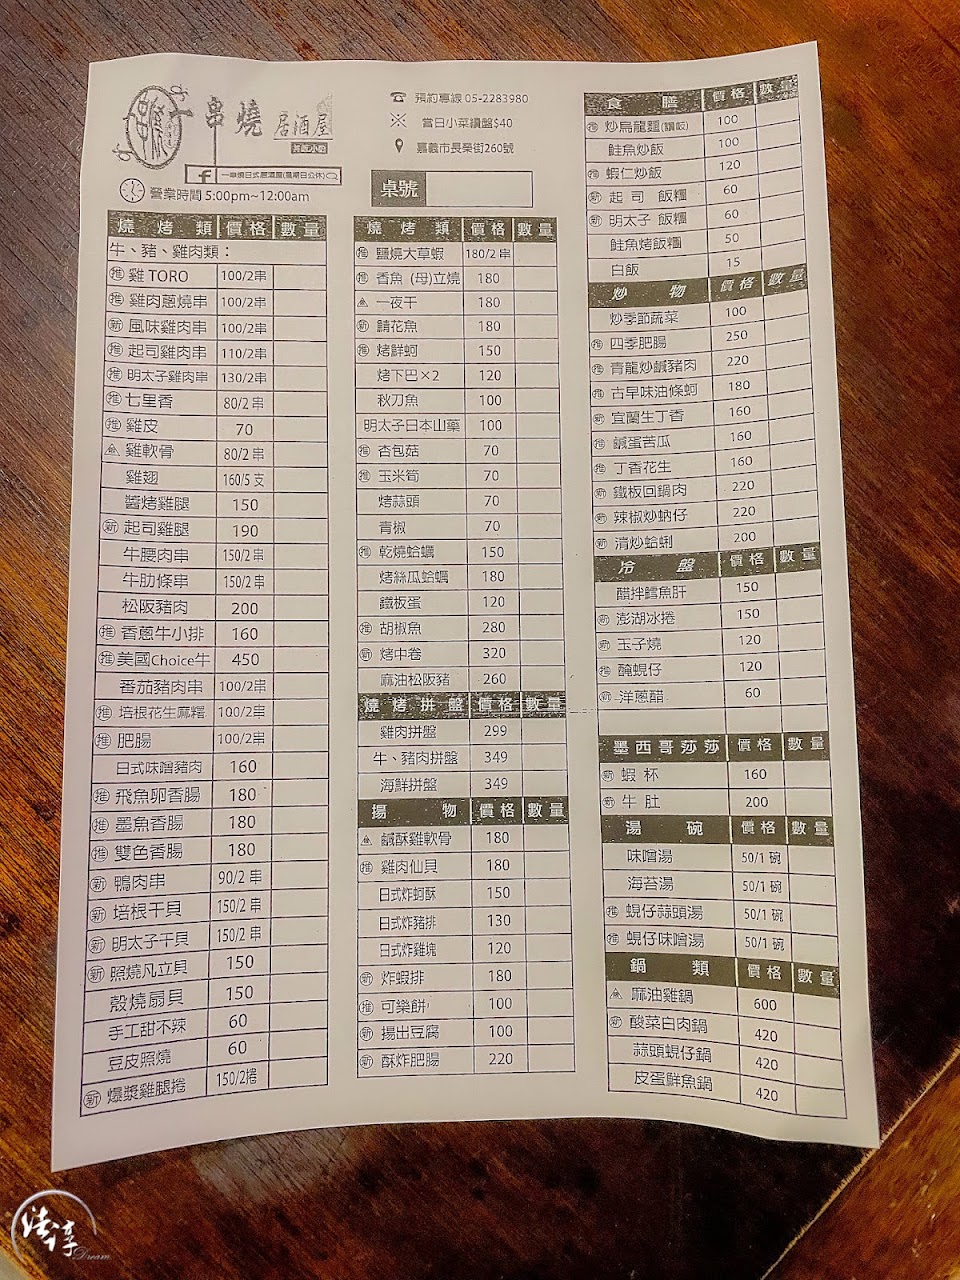 串燒 居酒屋
預約專線 05-2283980
※ 當日小菜續盤$40
嘉義市長榮街260號
一串燒日式居酒屋(星期日公休)
營業時間 5:00pm~12:00am
桌號
燒烤類 價格 數量
牛、豬、雞肉類：
推 雞 TORO 100/2串
推 雞肉蔥燒串 100/2串
新 風味雞肉串 100/2串
推 起司雞肉串 110/2串
推 明太子雞肉串 130/2串
推 七里香 80/2 串
推 雞皮 70
雞軟骨 80/2 串
雞翅 160/5 支
醬烤雞腿 150
新 起司雞腿 190
牛腰肉串 150/2 串
牛肋條串 150/2 串
松阪豬肉 200
推 香蔥牛小排 160
推 美國Choice牛 450
番茄豬肉串 100/2串
推 培根花生麻糬 100/2串
推 肥腸 100/2串
日式味噌豬肉 160
推 飛魚卵香腸 180
推 墨魚香腸 180
推 雙色香腸 180
新 鴨肉串 90/2 串
新 培根干貝 150/2 串
新 明太子干貝 150/2 串
新 照燒凡立貝 150
殼燒扇貝 150
手工甜不辣 60
豆皮照燒 60
新 爆漿雞腿捲 150/2捲
燒烤類 價格 數量
推 鹽燒大草蝦 180/2 串
推 香魚 (母)立燒 180
一夜干 180
新 鯖花魚 180
推 烤鮮蚵 150
烤下巴×2 120
秋刀魚 100
明太子日本山藥 100
推 杏包菇 70
推 玉米筍 70
烤蒜頭 70
青椒 70
推 乾燒蛤蠣 150
烤絲瓜蛤蠣 180
鐵板蛋 120
推 胡椒魚 280
新 烤中卷 320
麻油松阪豬 260
燒烤拼盤 價格 數量
雞肉拼盤 299
牛、豬肉拼盤 349
海鮮拼盤 349
揚物 價格 數量
鹹酥雞軟骨 180
推 雞肉仙貝 180
日式炸蚵酥 150
日式炸豬排 130
日式炸雞塊 120
新 炸蝦排 180
推 可樂餅 100
新 揚出豆腐 100
新 酥炸肥腸 220
食膳 價格 數量
推 炒烏龍麵(讚岐) 100
鮭魚炒飯 100
推 蝦仁炒飯 120
新 起司 飯糰 60
新 明太子 飯糰 60
鮭魚烤飯糰 50
白飯 15
炒物 價格 數量
炒季節蔬菜 100
推 四季肥腸 250
推 青龍炒鹹豬肉 220
推 古早味油條蚵 180
新 宜蘭生丁香 160
推 鹹蛋苦瓜 160
推 丁香花生 160
新 鐵板回鍋肉 220
新 辣椒炒蚋仔 220
新 清炒蛤蜊 200
冷盤 價格 數量
醋拌鱈魚肝 150
新 澎湖冰捲 150
新 玉子燒 120
推 醃蜆仔 120
新 洋蔥醋 60
墨西哥莎莎 價格 數量
新 蝦杯 160
新 牛肚 200
湯碗 價格 數量
味噌湯 50/1 碗
海苔湯 50/1 碗
推 蜆仔蒜頭湯 50/1 碗
推 蜆仔味噌湯 50/1 碗
鍋類 價格 數量
麻油雞鍋 600
新 酸菜白肉鍋 420
蒜頭蜆仔鍋 420
皮蛋鮮魚鍋 420
Dream